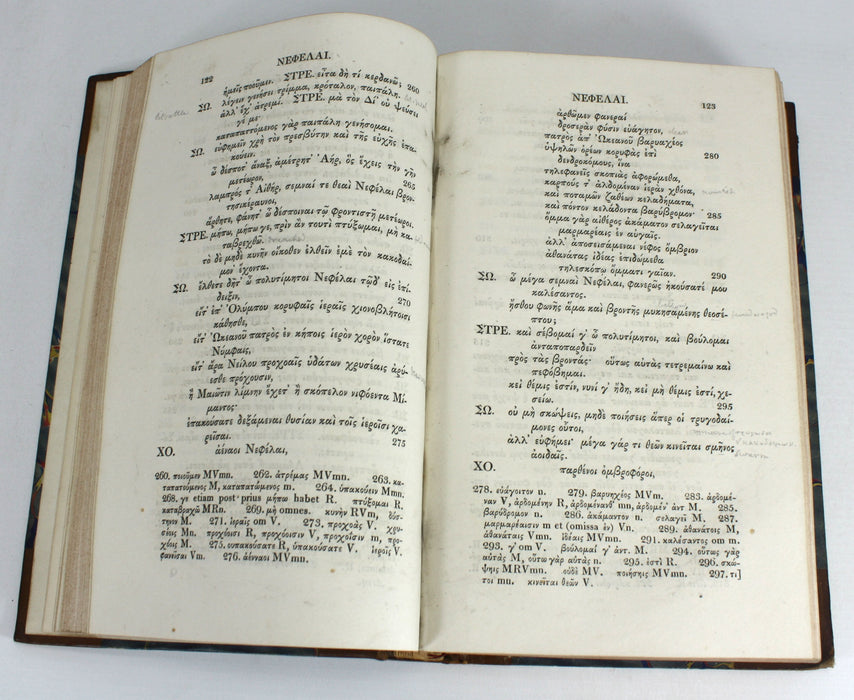 122
ΝΕΦΕΛΑΙ.
ἡμεῖς ποιοῦμεν. ΣΤΡΕ. εἶτα δὴ τί κερδανῶ; 260
ΣΩ. λέγειν γενήσει τρίμμα, κρόταλον, παιπάλη.
ἀλλ' ἔχ' ἀτρεμί. ΣΤΡΕ. μὰ τὸν Δί' οὐ ψεύσει
γέ με·
καταπαττόμενος γὰρ παιπάλη γενήσομαι.
ΣΩ. εὐφημεῖν χρὴ τὸν πρεσβύτην καὶ τῆς εὐχῆς ἐπα-
κούειν.
ὦ δέσποτ' ἄναξ, ἀμέτρητ' Ἀήρ, ὃς ἔχεις τὴν γῆν
μετέωρον, 265
λαμπρός τ' Αἰθήρ, σεμναί τε θεαὶ Νεφέλαι βρον-
τησικέραυνοι,
ἄρθητε, φάνητ' ὦ δέσποιναι τῷ φροντιστῇ μετέωροι.
ΣΤΡΕ. μήπω, μήπω γε, πρὶν ἂν τουτὶ πτύξωμαι, μὴ κα-
ταβρεχθῶ.
τὸ δὲ μηδὲ κυνῆν οἴκοθεν ἐλθεῖν ἐμὲ τὸν κακοδαί-
μον' ἔχοντα.
ΣΩ. ἔλθετε δῆτ' ὦ πολυτίμητοι Νεφέλαι τῷδ' εἰς ἐπί-
δειξιν, 270
εἴτ' ἐπ' Ὀλύμπου κορυφαῖς ἱεραῖς χιονοβλήτοισι
κάθησθε,
εἴτ' Ὠκεανοῦ πατρὸς ἐν κήποις ἱερὸν χορὸν ἵστατε
Νύμφαις,
εἴτ' ἄρα Νείλου προχοαῖς ὑδάτων χρυσέαις ἀρύ-
εσθε πρόχουσιν,
ἢ Μαιῶτιν λίμνην ἔχετ' ἢ σκόπελον νιφόεντα Μί-
μαντος·
ἐπακούσατε δεξάμεναι θυσίαν καὶ τοῖς ἱεροῖσι χα-
ρεῖσαι. 275
ΧΟ. ἀέναοι Νεφέλαι,
260. ποιοῦμεν MVmn. 262. ἀτρέμας MVmn. 263. κα-
ταπατούμενος M, καταπατόμενος m. 264. ὑπακούειν Mmn.
268. γε etiam post prius μήπω habet R. πτύξομαι R.
καταβροχῶ MRn. 269. μὴ omnes. κυνὴν RVm, δύσ-
τηνον M. 271. ἱεραῖς om V. 273. προχοὰς V. χρυ-
σέοις Mn. προχόισι R, προχόοισιν V, προχοῖσιν m, προ-
χόοις M. 275. ουπακούσατε R, ὑπακούσατε V. ἱεροῖς V.
φανεῖσαι Vm. 276. ἀένναοι MVmn.
ΝΕΦΕΛΑΙ.
123
ἀρθῶμεν φανεραὶ
δροσερὰν φύσιν εὐάγητον,
πατρὸς ἀπ' Ὠκεανοῦ βαρυαχέος
ὑψηλῶν ὀρέων κορυφὰς ἐπὶ 280
δενδροκόμους, ἵνα
τηλεφανεῖς σκοπιὰς ἀφορώμεθα,
καρπούς τ' ἀλδομέναν ἱερὰν χθόνα,
καὶ ποταμῶν ζαθέων κελαδήματα,
καὶ πόντον κελάδοντα βαρύβρομον·
ὄμμα γὰρ αἰθέρος ἀκάματον σελαγεῖται 285
μαρμαρέαις ἐν αὐγαῖς.
ἀλλ' ἀποσεισάμεναι νέφος ὄμβριον
ἀθανάτας ἰδέας ἐπιδώμεθα
τηλεσκόπῳ ὄμματι γαῖαν. 290
ΣΩ. ὦ μέγα σεμναὶ Νεφέλαι, φανερῶς ἠκούσατέ μου
καλέσαντος.
ᾔσθου φωνῆς ἅμα καὶ βροντῆς μυκησαμένης θεοσέ-
πτου;
ΣΤΡΕ. καὶ σέβομαί γ' ὦ πολυτίμητοι, καὶ βούλομαι
ἀνταποπαρδεῖν
πρὸς τὰς βροντάς· οὕτως αὐτὰς τετρεμαίνω καὶ
πεφόβημαι.
κεἰ θέμις ἐστίν, νυνί γ' ἤδη, κεἰ μὴ θέμις ἐστί, χε-
σείω. 295
ΣΩ. οὐ μὴ σκώψεις, μηδὲ ποιήσεις ἅπερ οἱ τρυγοδαί-
μονες οὗτοι,
ἀλλ' εὐφήμει· μέγα γάρ τι θεῶν κινεῖται σμῆνος
ἀοιδαῖς.
ΧΟ. παρθένοι ὀμβροφόροι,
278. εὐάγοιτον n. 279. βαρυηχέος MVm. 283. ἀρδομέ-
ναν V, ἀρδομένην R, ἀρδομένανθ' mn, ἀρδομέν' ἀντ M. 285.
βαρύδρομον n. 286. ἀκάμαντον n. σελαγεῖ M. 287.
μαρμαρέαισιν m et (omissa ἐν) Vn. 289. ἀθανάτοις M,
ἀθανάταις Vmn. ἰδέαις MVmn. 291. καλέσαντος om m.
293. γ' om V. βούλομαί γ' ἀντ M. 294. οὕτως γὰρ
αὐτὰς M, οὕτω γὰρ αὐτὰς n. 295. ἐστὶ R. 296. σκώ-
ψῃς MRVmn. οὐδὲ MV. ποιήσῃς MVmn. 297. τι]
τοι mn. κινεῖται θεῶν V.